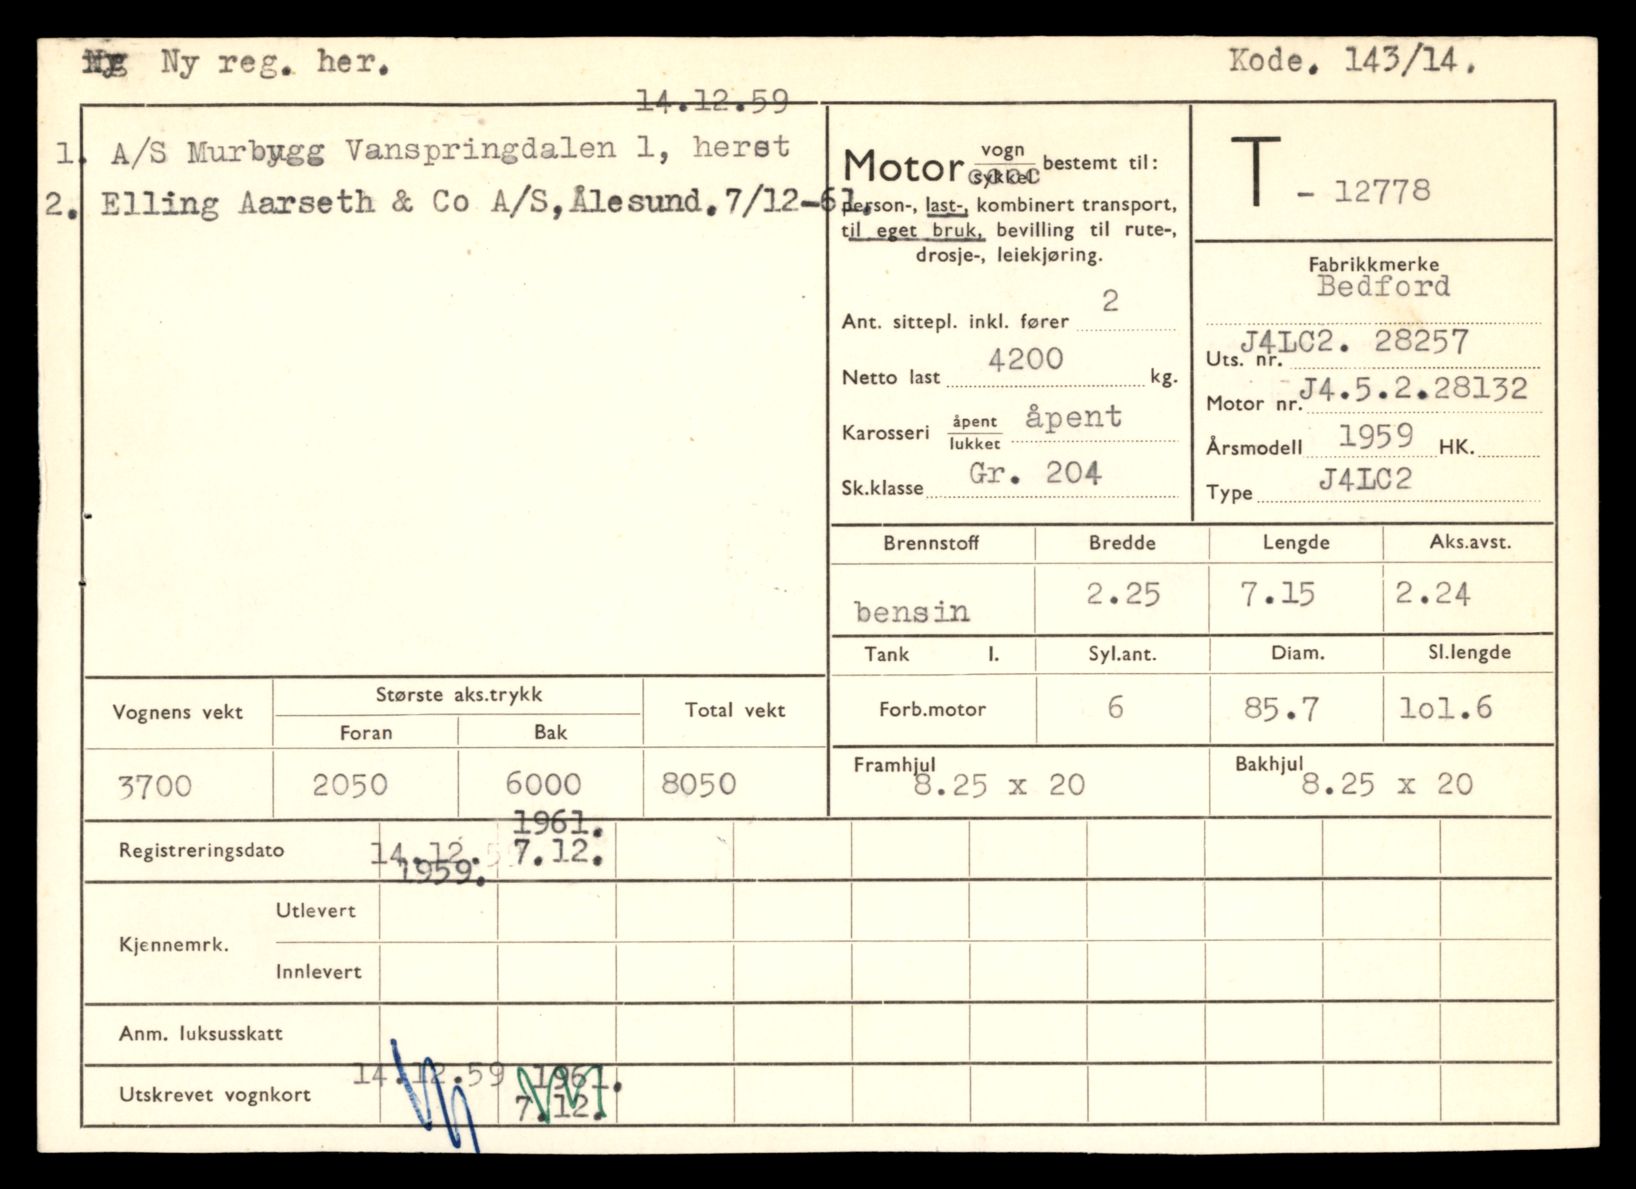 Ny Ny reg. her.
Kode. 143/14.
14.12.59
1. A/S Murbygg Vanspringdalen 1, herst
2. Elling Aarseth & Co A/S, Ålesund. 7/12-61.
Motor vogn sykkel bestemt til:
person-, last-, kombinert transport,
til eget bruk, bevilling til rute-,
drosje-, leiekjøring.
Ant. sittepl. inkl. fører 2
Netto last 4200 kg.
Karosseri åpent lukket åpent
Sk.klasse Gr. 204
T - 12778
Fabrikkmerke
Bedford
Uts. nr. J4LC2. 28257
Motor nr. J4.5.2.28132
Årsmodell 1959 HK.
Type J4LC2
Brennstoff Bredde Lengde Aks.avst.
bensin 2.25 7.15 2.24
Tank l. Syl.ant. Diam. Sl.lengde
Forb.motor 6 85.7 lol.6
Framhjul 8.25 x 20
Bakhjul 8.25 x 20
Vognens vekt Største aks.trykk Total vekt
Foran Bak
3700 2050 6000 8050
Registreringsdato 14.12.59 1959. 1961. 7.12.
Kjennemrk. Utlevert
Innlevert
Anm. luksusskatt
Utskrevet vognkort 14.12.59 1961. 7.12.